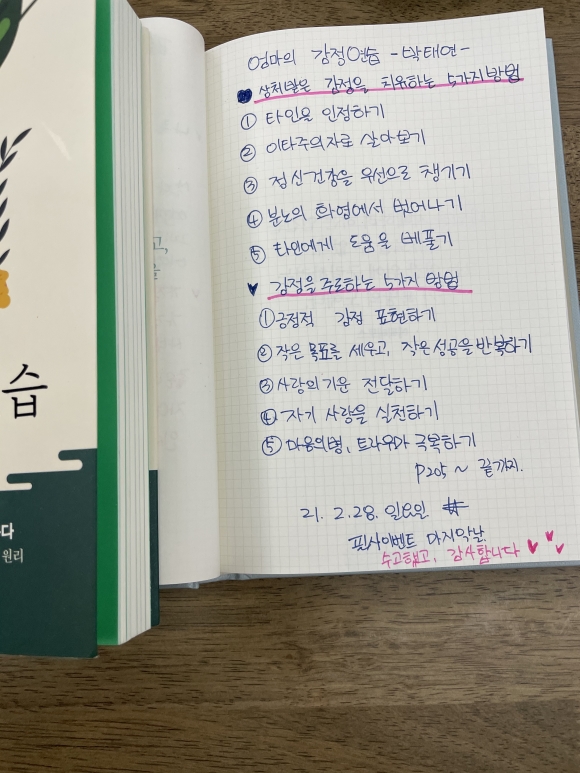 습
다
원리
엄마의 감정연습 -박태연-
상처받은 감정을 치유하는 5가지방법
① 타인을 인정하기
② 이타주의자로 살아보기
③ 정신건강을 우선으로 챙기기
④ 분노의 화염에서 벗어나기
⑤ 타인에게 도움을 베풀기
감정을주도하는 5가지 방법
① 긍정적 감정 표현하기
② 작은 목표를 세우고, 작은성공을반복하기
③ 사랑의기운 전달하기
④ 자기 사랑을 실천하기
⑤ 마음의병, 트라우마 극복하기
P205 ~ 끝까지.
21. 2.28. 일요일
필사이벤트 마지막날
수고했고, 감사합니다